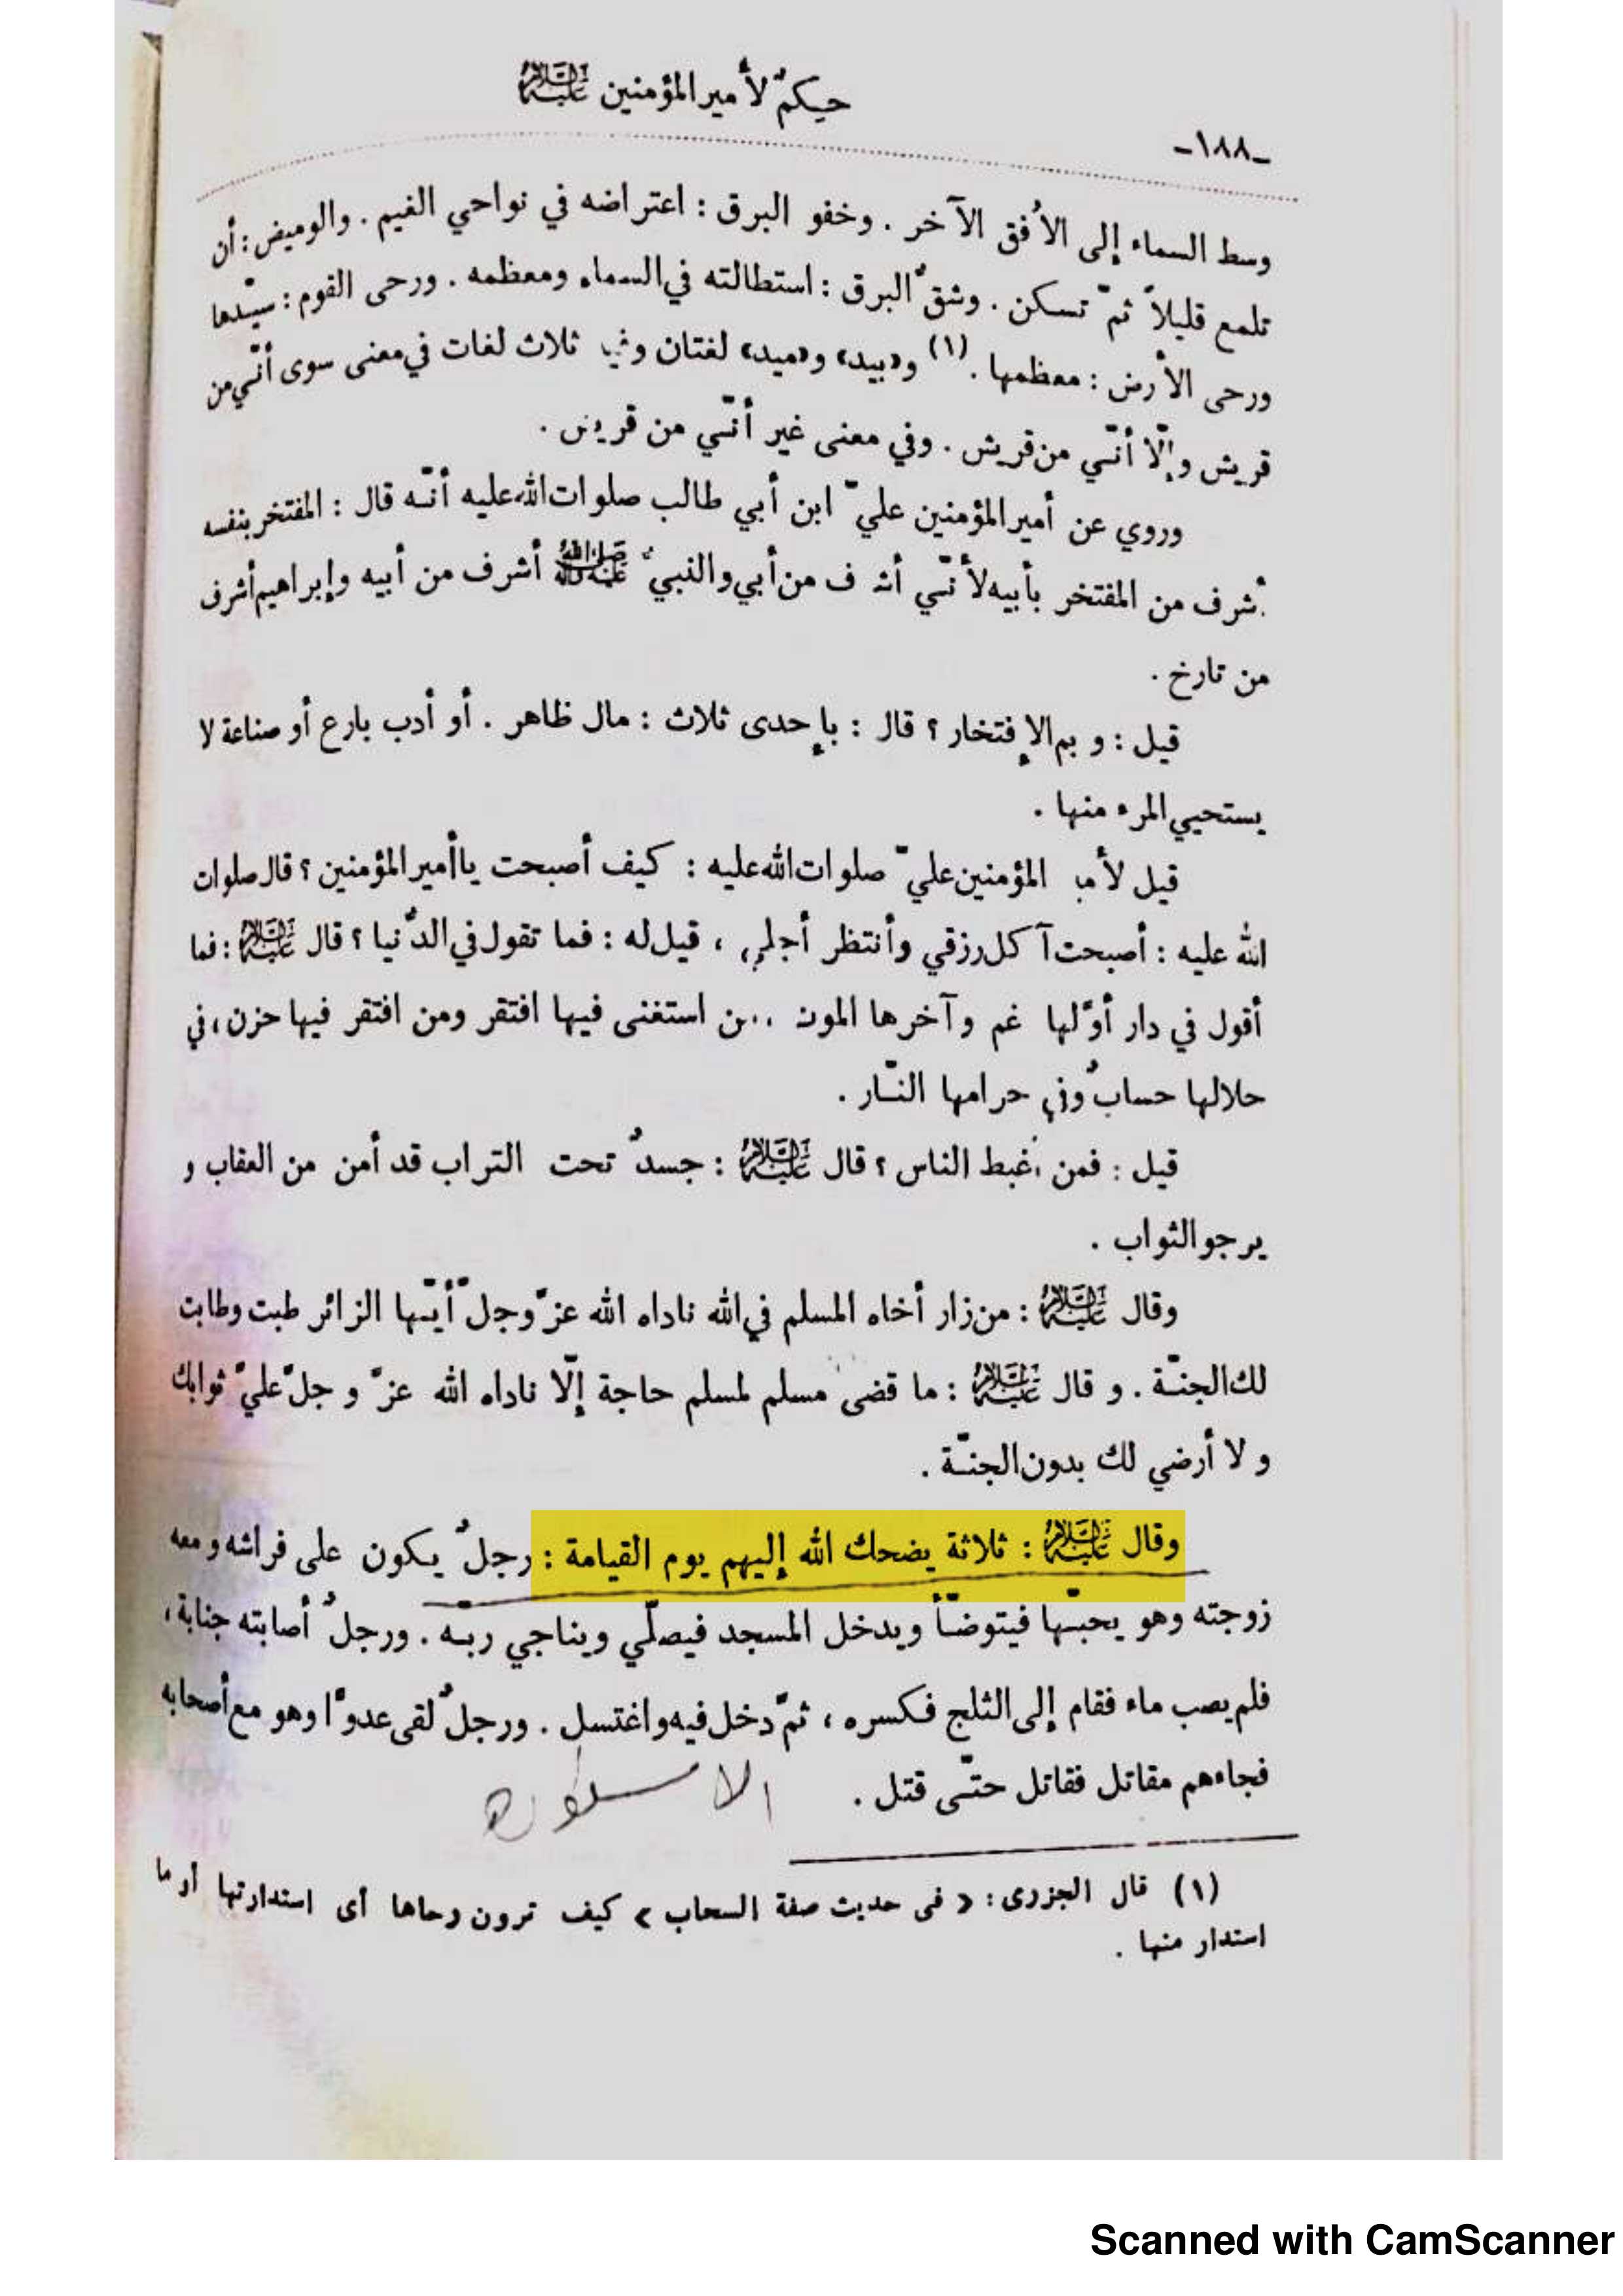 حِكَمٌ لأمير المؤمنين عليه السلام
-١٨٨-
وسط السماء إلى الأُفق الآخر . وخفو البرق : اعتراضه في نواحي الغيم . والوميض : أن
تلمع قليلاً ثمّ تسكن . وشقّ البرق : استطالته في السماء ومعظمه . ورحى القوم : سيّدها
ورحى الأرض : معظمها .(١) و«بيد» و«ميد» لغتان وفي ثلاث لغات في معنى سوى أنّي من
قريش وإلّا أنّي من قريش . وفي معنى غير أنّي من قريش .
وروي عن أمير المؤمنين عليّ ابن أبي طالب صلوات الله عليه أنّه قال : المفتخر بنفسه
أشرف من المفتخر بأبيه لأنّي أشرف من أبي والنبيّ صلى الله عليه وآله أشرف من أبيه وإبراهيم أشرف
من تارخ .
قيل : و بم الإفتخار ؟ قال : بإحدى ثلاث : مال ظاهر . أو أدب بارع أو صناعة لا
يستحيي المرء منها .
قيل لأمير المؤمنين عليّ صلوات الله عليه : كيف أصبحت يا أمير المؤمنين ؟ قال صلوات
الله عليه : أصبحت آكل رزقي وأنتظر أجلي ، قيل له : فما تقول في الدّنيا ؟ قال عليه السلام : فما
أقول في دار أوّلها غم وآخرها الموت من استغنى فيها افتقر ومن افتقر فيها حزن ، في
حلالها حسابٌ وفي حرامها النّار .
قيل : فمن أغبط الناس ؟ قال عليه السلام : جسدٌ تحت التراب قد أمن من العقاب و
يرجو الثواب .
وقال عليه السلام : من زار أخاه المسلم في الله ناداه الله عزّ وجلّ أيّها الزائر طبت وطابت
لك الجنّة . و قال عليه السلام : ما قضى مسلم لمسلم حاجة إلّا ناداه الله عزّ و جلّ عليّ ثوابك
و لا أرضي لك بدون الجنّة .
وقال عليه السلام : ثلاثة يضحك الله إليهم يوم القيامة : رجلٌ يكون على فراشه ومعه
زوجته وهو يحبّها فيتوضّأ ويدخل المسجد فيصلّي ويناجي ربّه . ورجلٌ أصابته جنابة ،
فلم يصب ماء فقام إلى الثلج فكسره ، ثمّ دخل فيه واغتسل . ورجلٌ لقى عدوّا وهو مع أصحابه
فجاءهم مقاتل فقاتل حتّى قتل .
(١) قال الجزرى : « فى حديث صفة السحاب » كيف ترون رحاها أى استدارتها أو ما
استدار منها .
Scanned with CamScanner